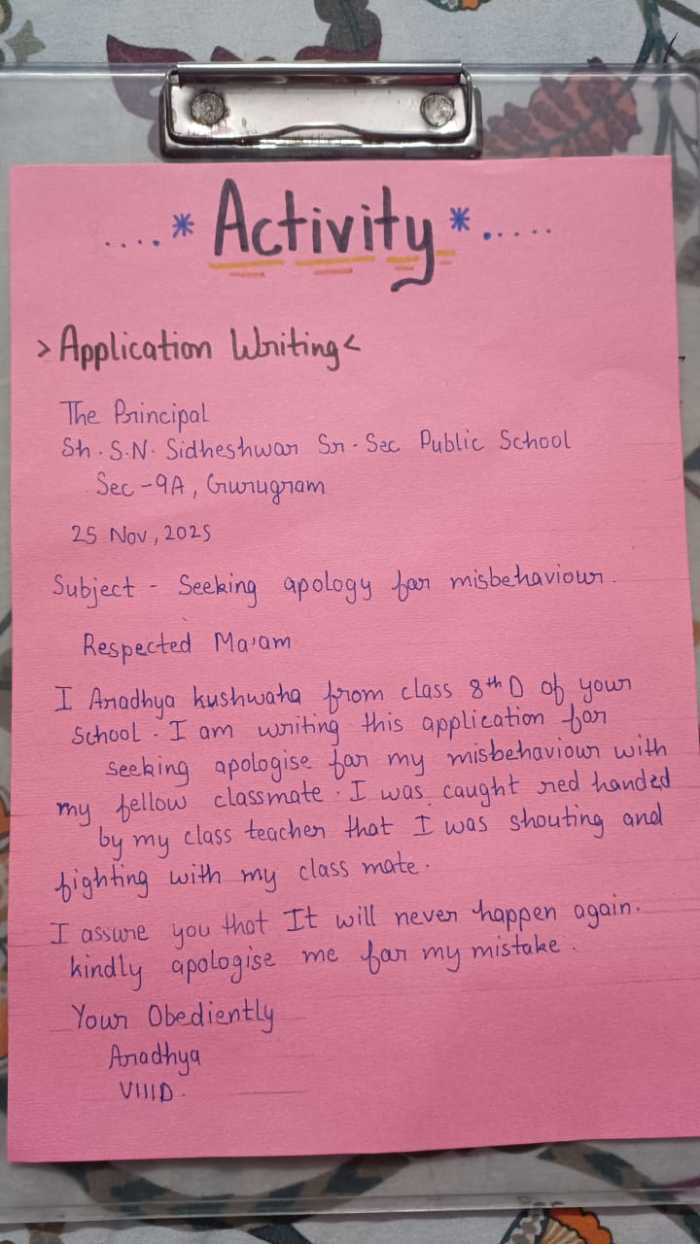 ....* Activity *.....
> Application Writing <
The Principal
Sh. S.N. Sidheshwar Sr. Sec Public School
Sec -9A, Gurugram
25 Nov, 2025
Subject - Seeking apology for misbehaviour.
Respected Ma'am
I Aradhya kushwaha from class 8th D of your
School. I am writing this application for
seeking apologise for my misbehaviour with
my fellow classmate. I was caught red handed
by my class teacher that I was shouting and
fighting with my class mate.
I assure you that It will never happen again.
kindly apologise me for my mistake.
Your Obediently
Aradhya
VIIID.